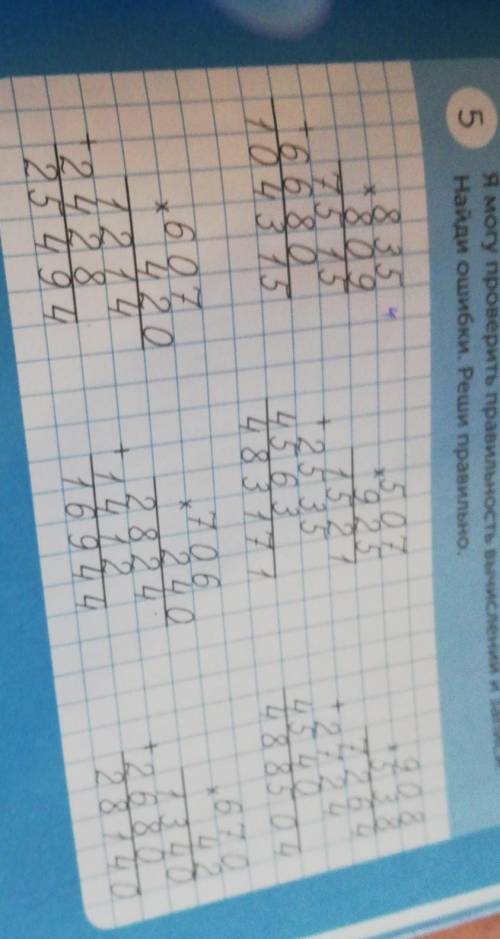 Я могу проверить правильность вычислений и
5 Найди ошибки. Реши правильно.
835
× 809
7515
+ 6680
104315
507
× 925
1521
+ 2535
4563
483171
908
× 538
7264
+ 2724
4540
488504
607
× 420
1214
+ 2428
25494
706
× 240
2824
+ 1412
16944
670
× 42
1340
+ 2680
28140